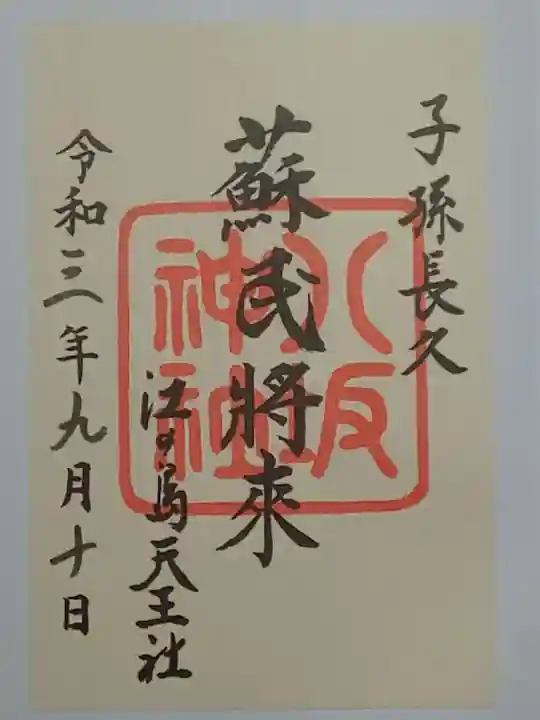 子孫長久
蘇民將來
江の島天王社
令和三年九月十日
八坂神社